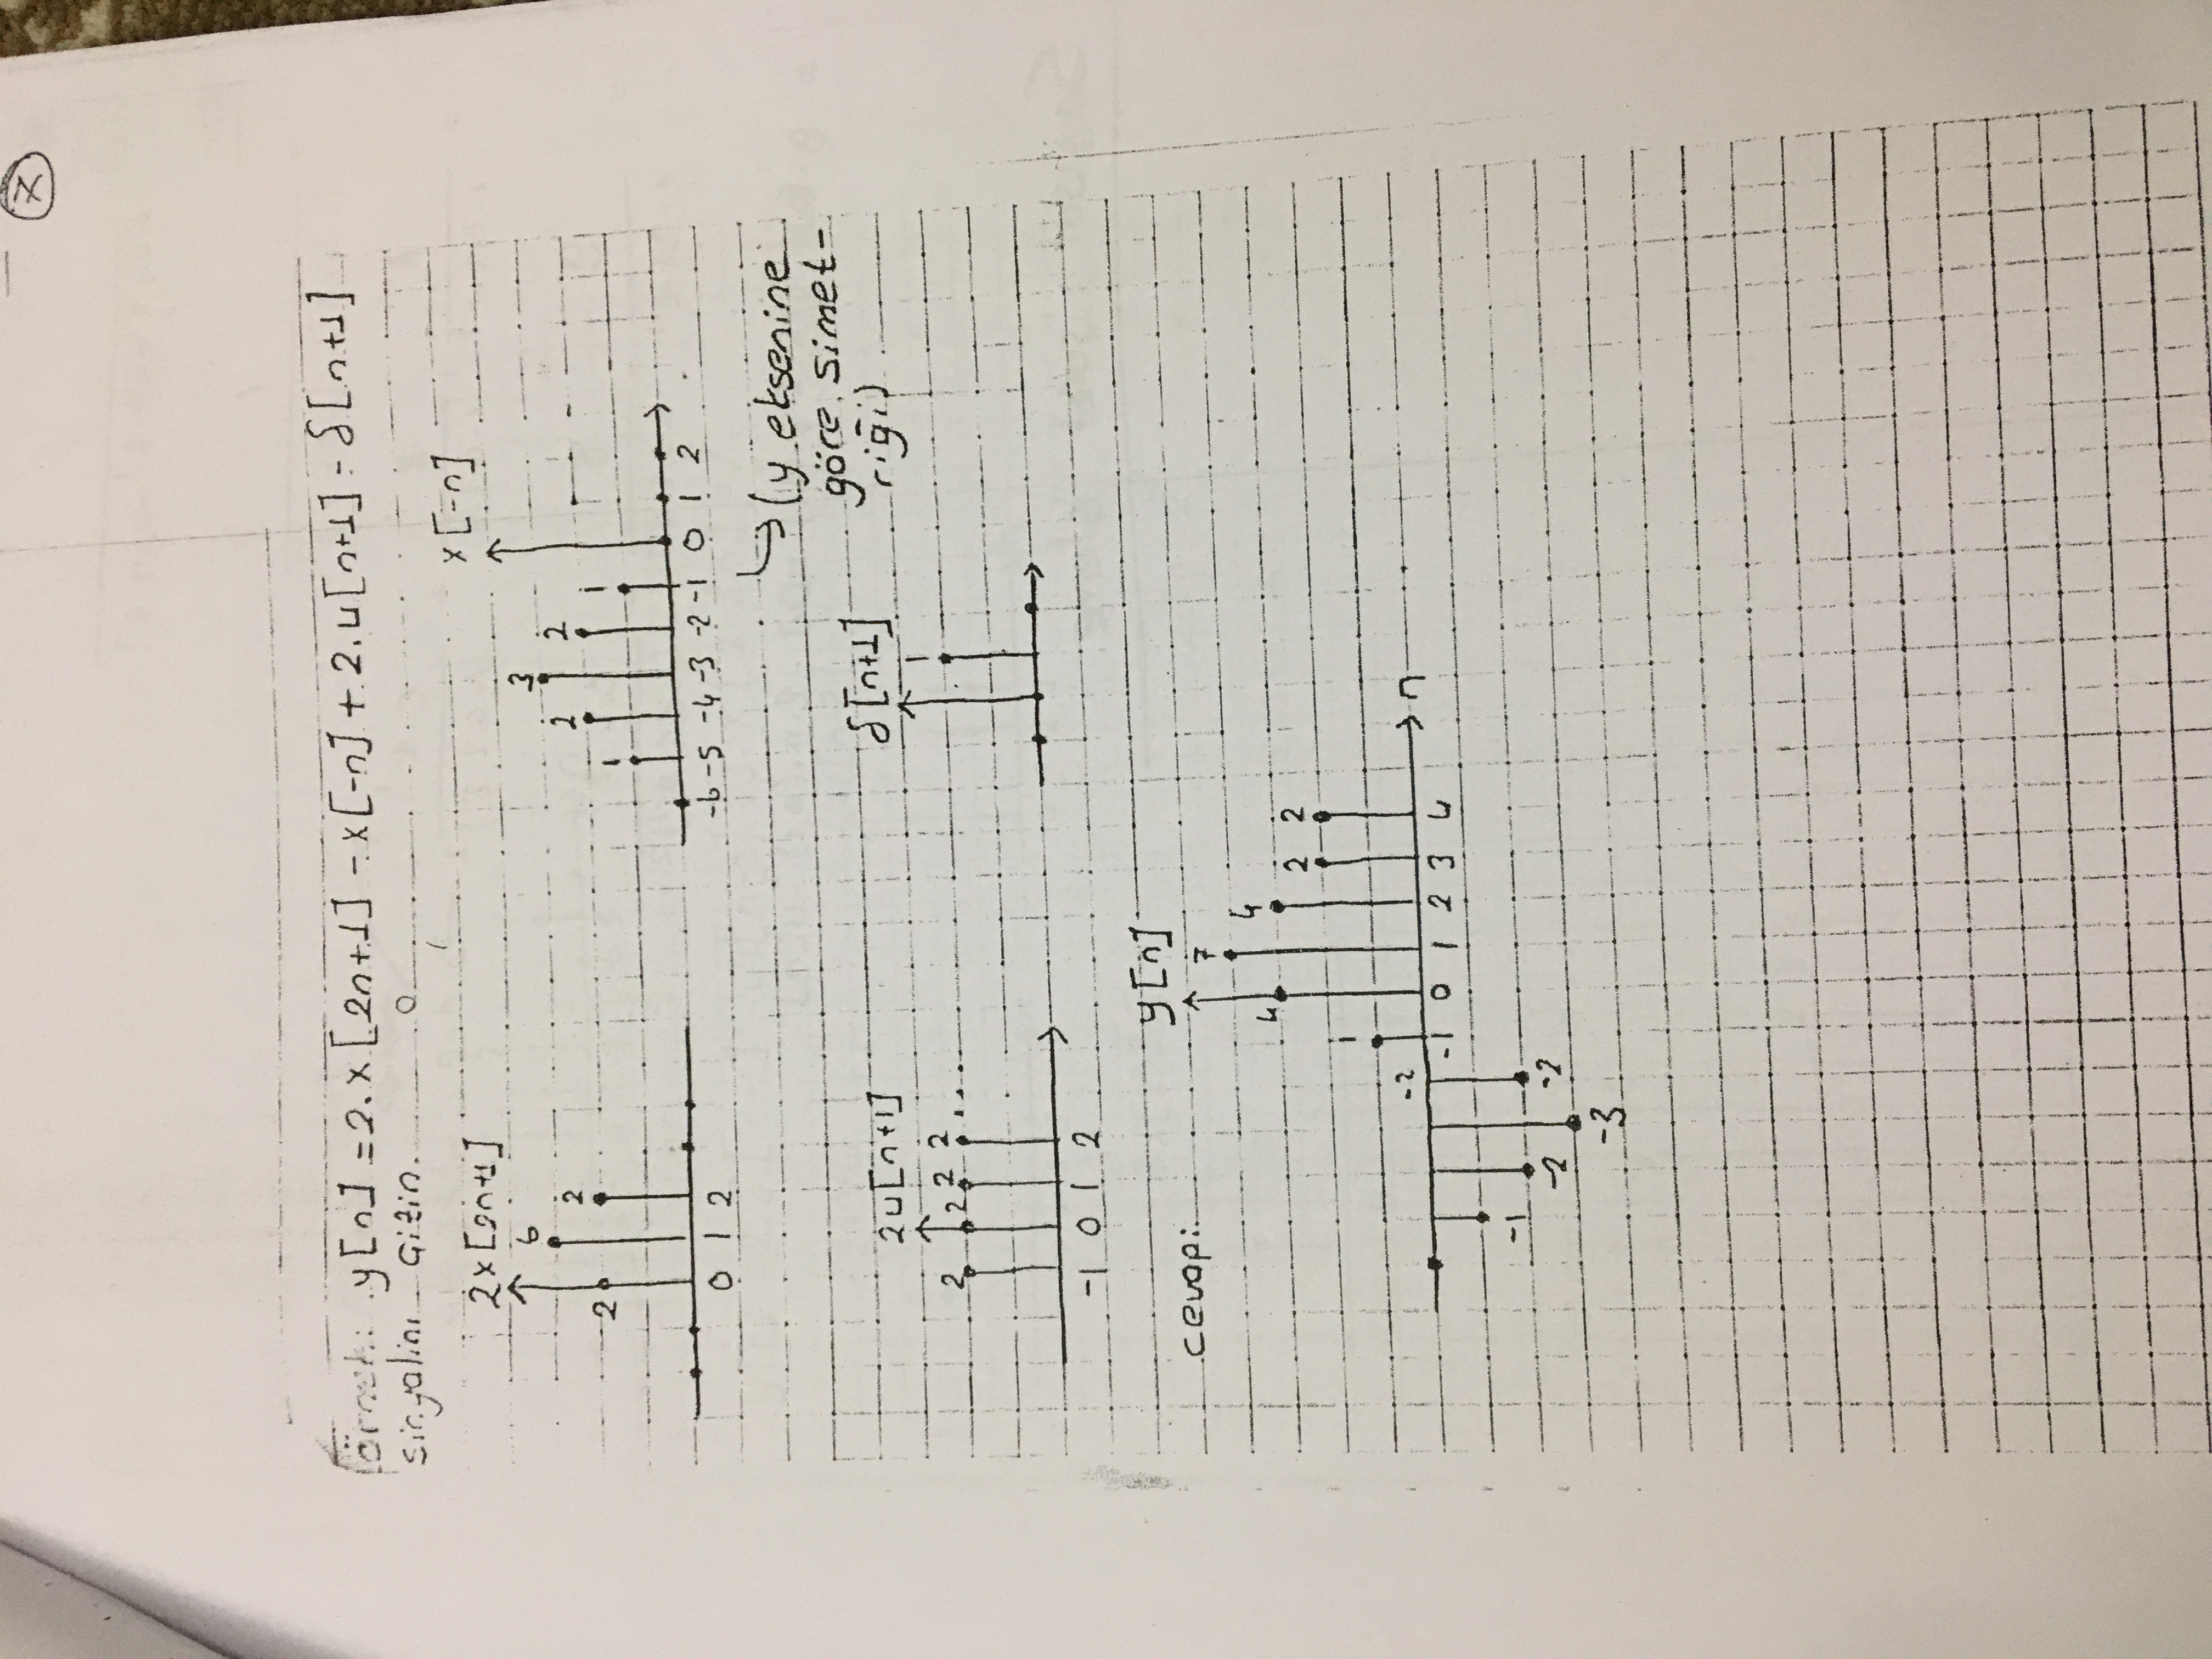 7
örnek: y[n] = 2.x[2n+1] - x[-n] + 2.u[n+1] - δ[n+1]
sinyalini Çizin.
2x[2n+1]
6
2
2
0 1 2
x[-n]
3
2
2
1
1
-6 -5 -4 -3 -2 -1 0 1 2
(y eksenine
göre simet-
riği)
2u[n+1]
2 2 2 2 ....
-1 0 1 2
δ[n+1]
1
cevap:
y[n]
7
4
4
2 2
1
-2
n
-1 0 1 2 3 4
-1
-2
-2
-3